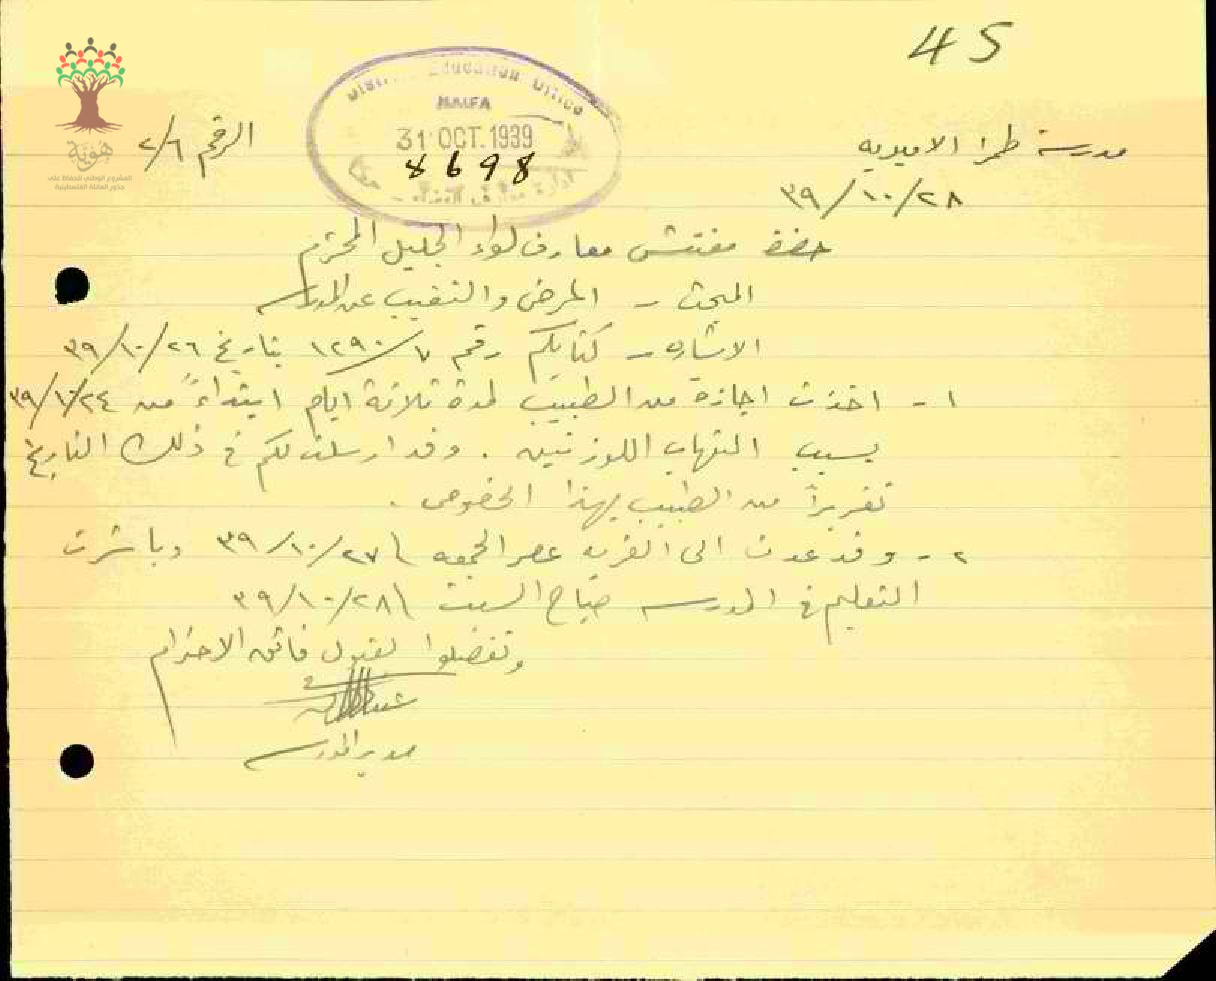 45
مدرسة طمرا الاميرية
الرقم ٢/٦
٣٩/١٠/٢٨
District Education Office
HAIFA
31 OCT. 1939
8698
هوية
المشروع الوطني للحفاظ على
جذور العائلة الفلسطينية
حضرة مفتش معارف لواء الجليل المحترم
المبحث - المرض والتغيب عن المدرسة
الاشارة - كتابكم رقم ١٢٩٠/٧ بتاريخ ٣٩/١٠/٢٦
١- اخذت اجازة من الطبيب لمدة ثلاثة ايام ابتداءً من ٣٩/١٠/٢٤
بسبب التهاب اللوزتين . وقد ارسلت لكم في ذلك التاريخ
تقريراً من الطبيب بهذا الخصوص .
٢- وقد عدت الى القرية عصر الجمعه \ ٣٩/١٠/٢٧ وباشرت
التعليم في المدرسه صباح السبت \ ٣٩/١٠/٢٨
وتفضلوا بقبول فائق الاحترام
مدير المدرسه